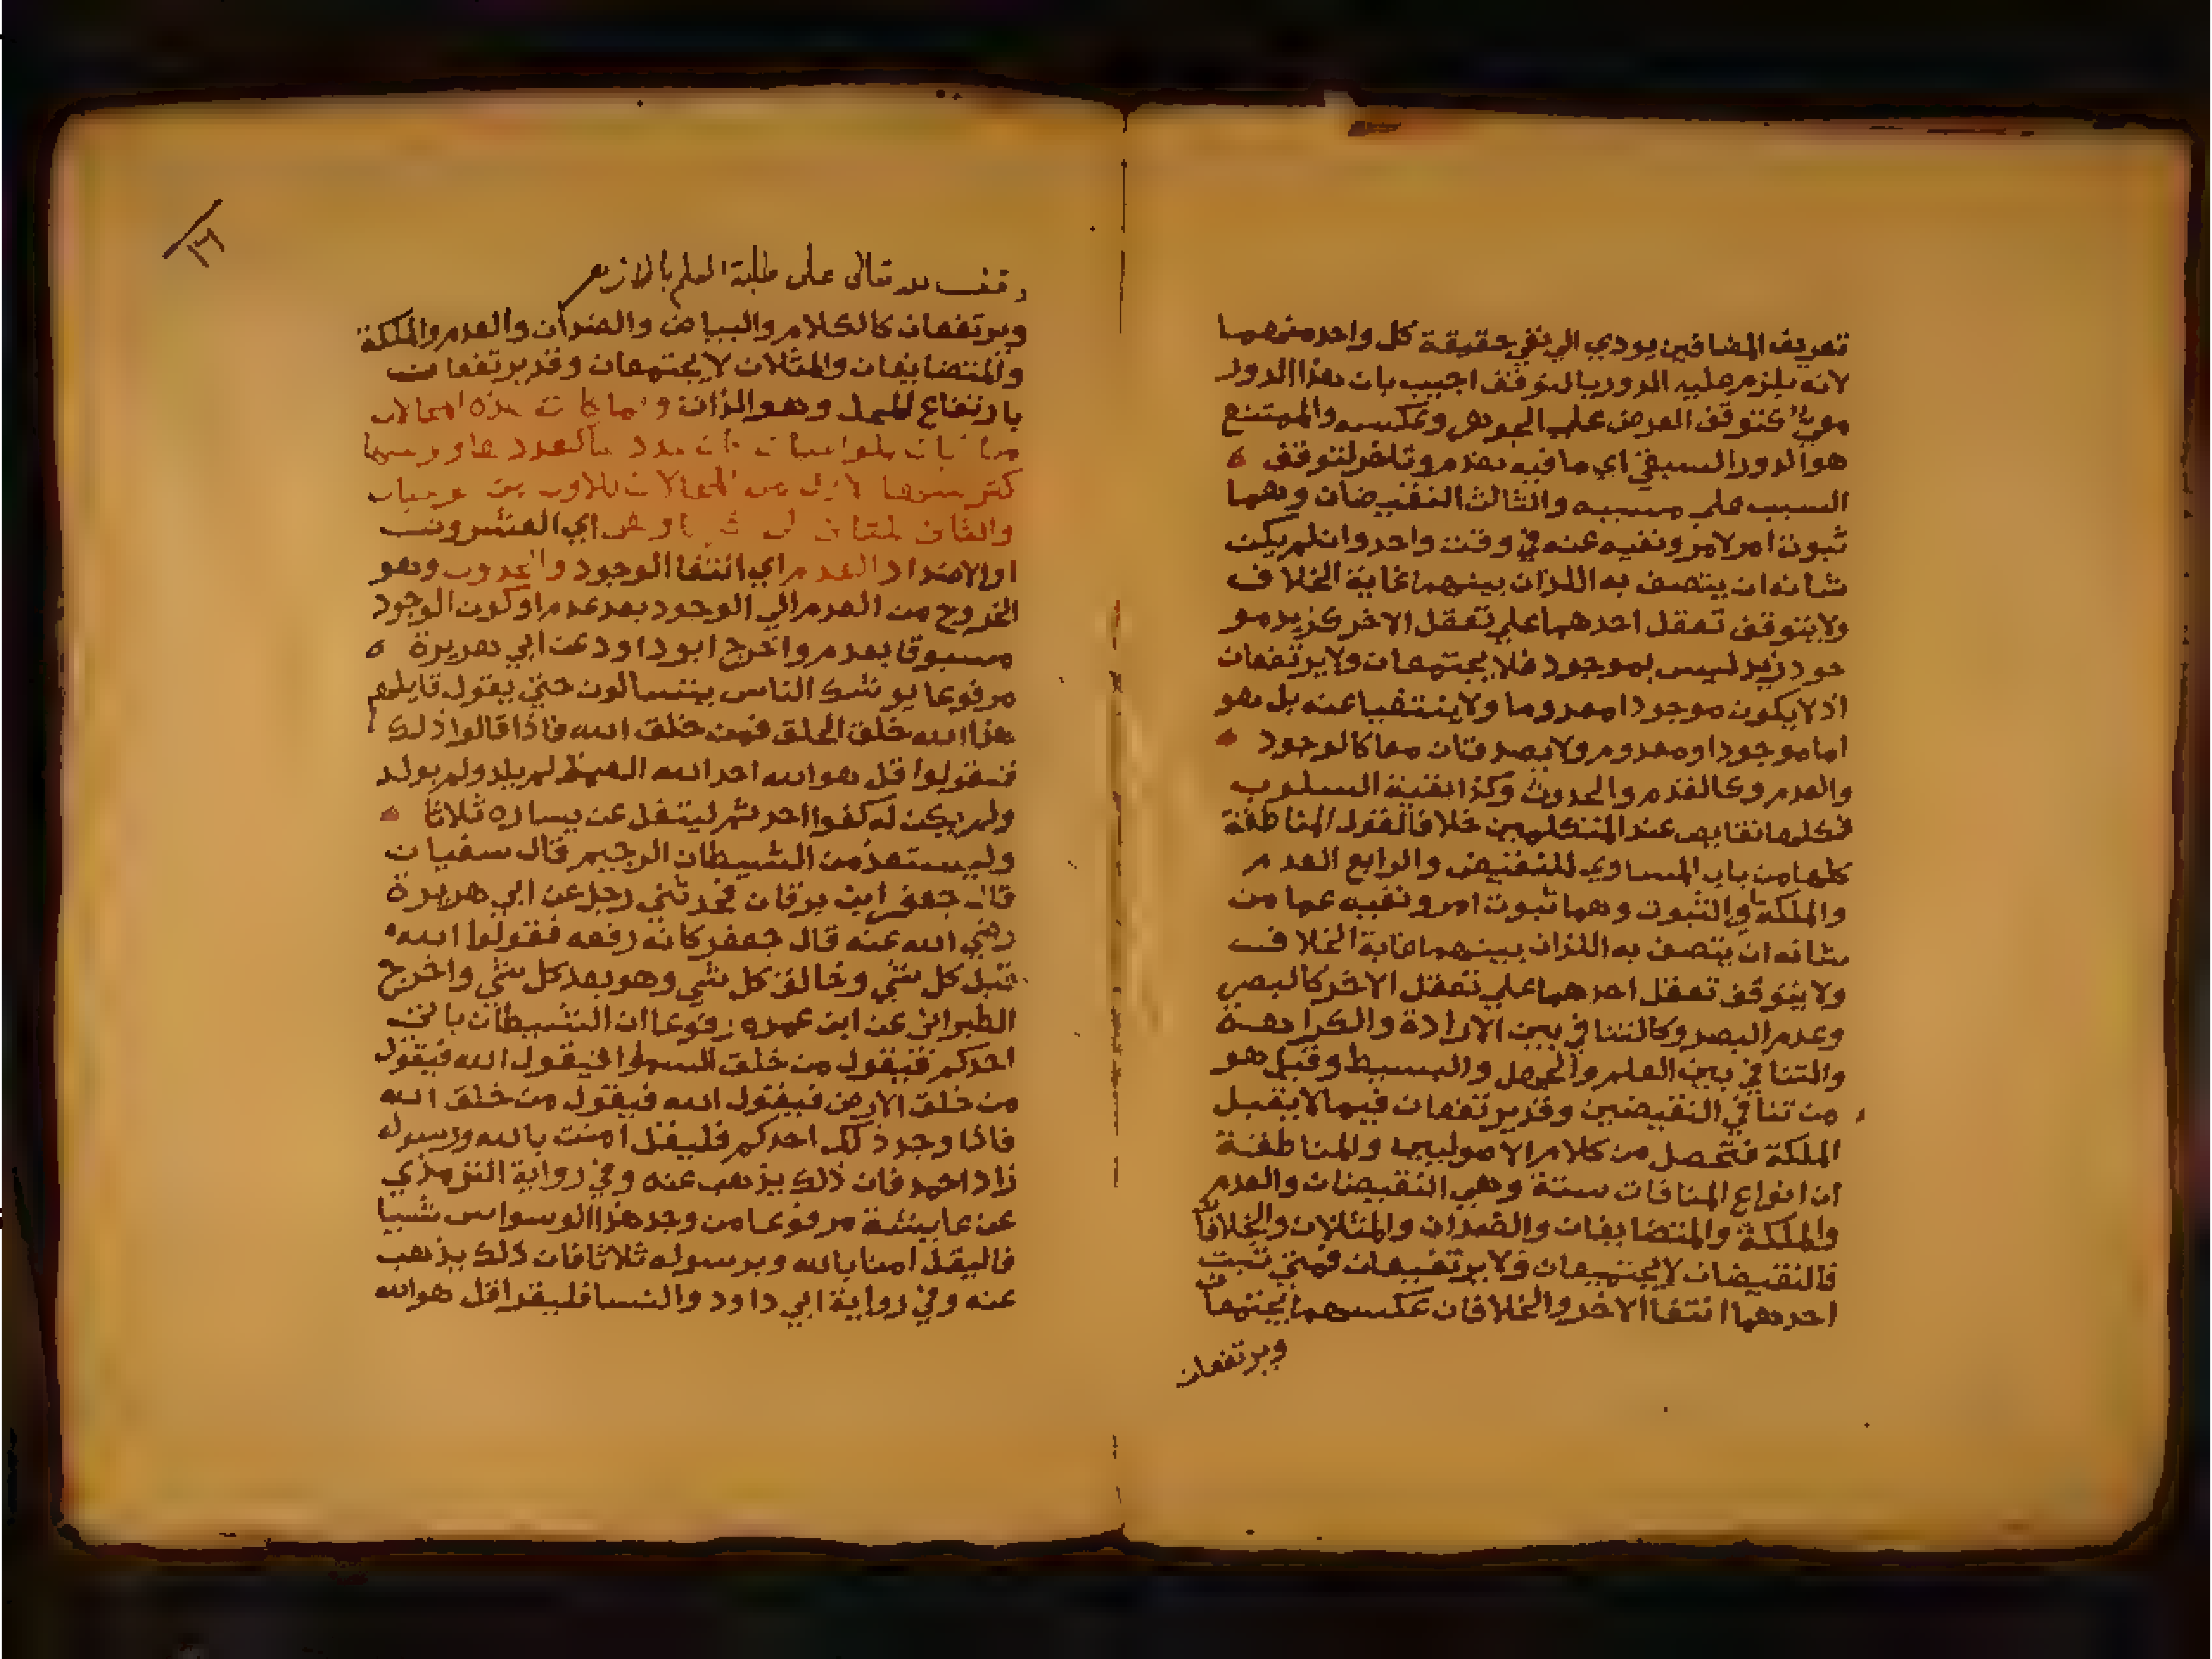 تعريف المضافين يودي الي نفي حقيقة كل واحد منهما
لانه يلزم عليه الدور بالتوقف اجيب بان هذا الدور
كتوقف العرض علي الجوهر وعكسه والممتنع
هو الدور السبقي اي ما فيه تقدم وتاخر لتوقف
السبب علي مسببه والثالث النقيضان وهما
ثبوت امر لامر ونفيه عنه في وقت واحد وان لم يكن
شانه ان يتصف به اللذان بينهما غاية الخلاف
ولا يتوقف تعقل احدهما علي تعقل الاخر كزيد مو
جود زيد ليس بموجود فلا يجتمعان ولا يرتفعان
اذ لا يكون موجودا معدوما ولا ينتفيا عنه بل هو
اما موجود او معدوم ولا يصدقان معا كالوجود
والعدم وكالقدم والحدوث وكذا بقية السلوب
فكلها نقايص عند المتكلمين خلافا لقول المناطقة
كلها من باب المساوي للنقيض والرابع العدم
والملكة والثبوت وهما ثبوت امر ونفيه عما من
شانه ان يتصف به اللذان بينهما غاية الخلاف
ولا يتوقف تعقل احدهما علي تعقل الاخر كالبصر
وعدم البصر وكالتنافي بين الارادة والكراهة
والتنافي بين العلم والجهل والبسيط وقيل هو
من تنافي النقيضين وقد يرتفعان فيما لا يقبل
الملكة فتحصل من كلام الاصوليين والمناطقة
ان انواع المنافات ستة وهي النقيضان والعدم
والملكة والمتضايفان والضدان والمثلان والخلافان
فالنقيضان لا يجتمعان ولا يرتفعان فمتي ثبت
احدهما انتفا الاخر والخلافان عكسهما يجتمعان
ويرتفعان
١٦
وقف لله تعالى على طلبة العلم بالازهر
ويرتفعان كالكلام والبياض والضدان والعدم والملكة
والمتضايفان والمثلان لا يجتمعان وقد يرتفعان
بارتفاع المحل وهو الذات هذه المحالات
والثاني اي العشرون
او الاضداد العدم اي انتفا الوجود والحدوث وهو
الخروج من العدم الي الوجود بعد عدم او كون الوجود
مسبوقا بعدم واخرج ابو داود عن ابي هريرة
مرفوعا يوشك الناس يتسالون حتي يقول قايلهم
هذا الله خلق الخلق فمن خلق الله فاذا قالوا ذلك
فقولوا قل هو الله احد الله الصمد لم يلد ولم يولد
ولم يكن له كفوا احد ثم ليتفل عن يساره ثلاثا
وليستعذ من الشيطان الرجيم قال سفيان
قال جعفر ابن برقان فحدثني رجل عن ابي هريرة
رضي الله عنه قال جعفر كانه رفعه فقولوا الله
قبل كل شي وخالق كل شي وهو بعد كل شي واخرج
الطبراني عن ابن عمر مرفوعا ان الشيطان ياتي
احدكم فيقول من خلق السما فيقول الله فيقول
من خلق الارض فيقول الله فيقول من خلق الله
فاذا وجد ذلك احدكم فليقل امنت بالله ورسوله
زاد احمد فان ذلك يذهب عنه وفي رواية الترمذي
عن عايشة مرفوعا من وجد هذا الوسواس شيا
فاليقل امنا بالله وبرسوله ثلاثا فان ذلك يذهب
عنه وفي رواية ابي داود والنسا فليقرا قل هو الله